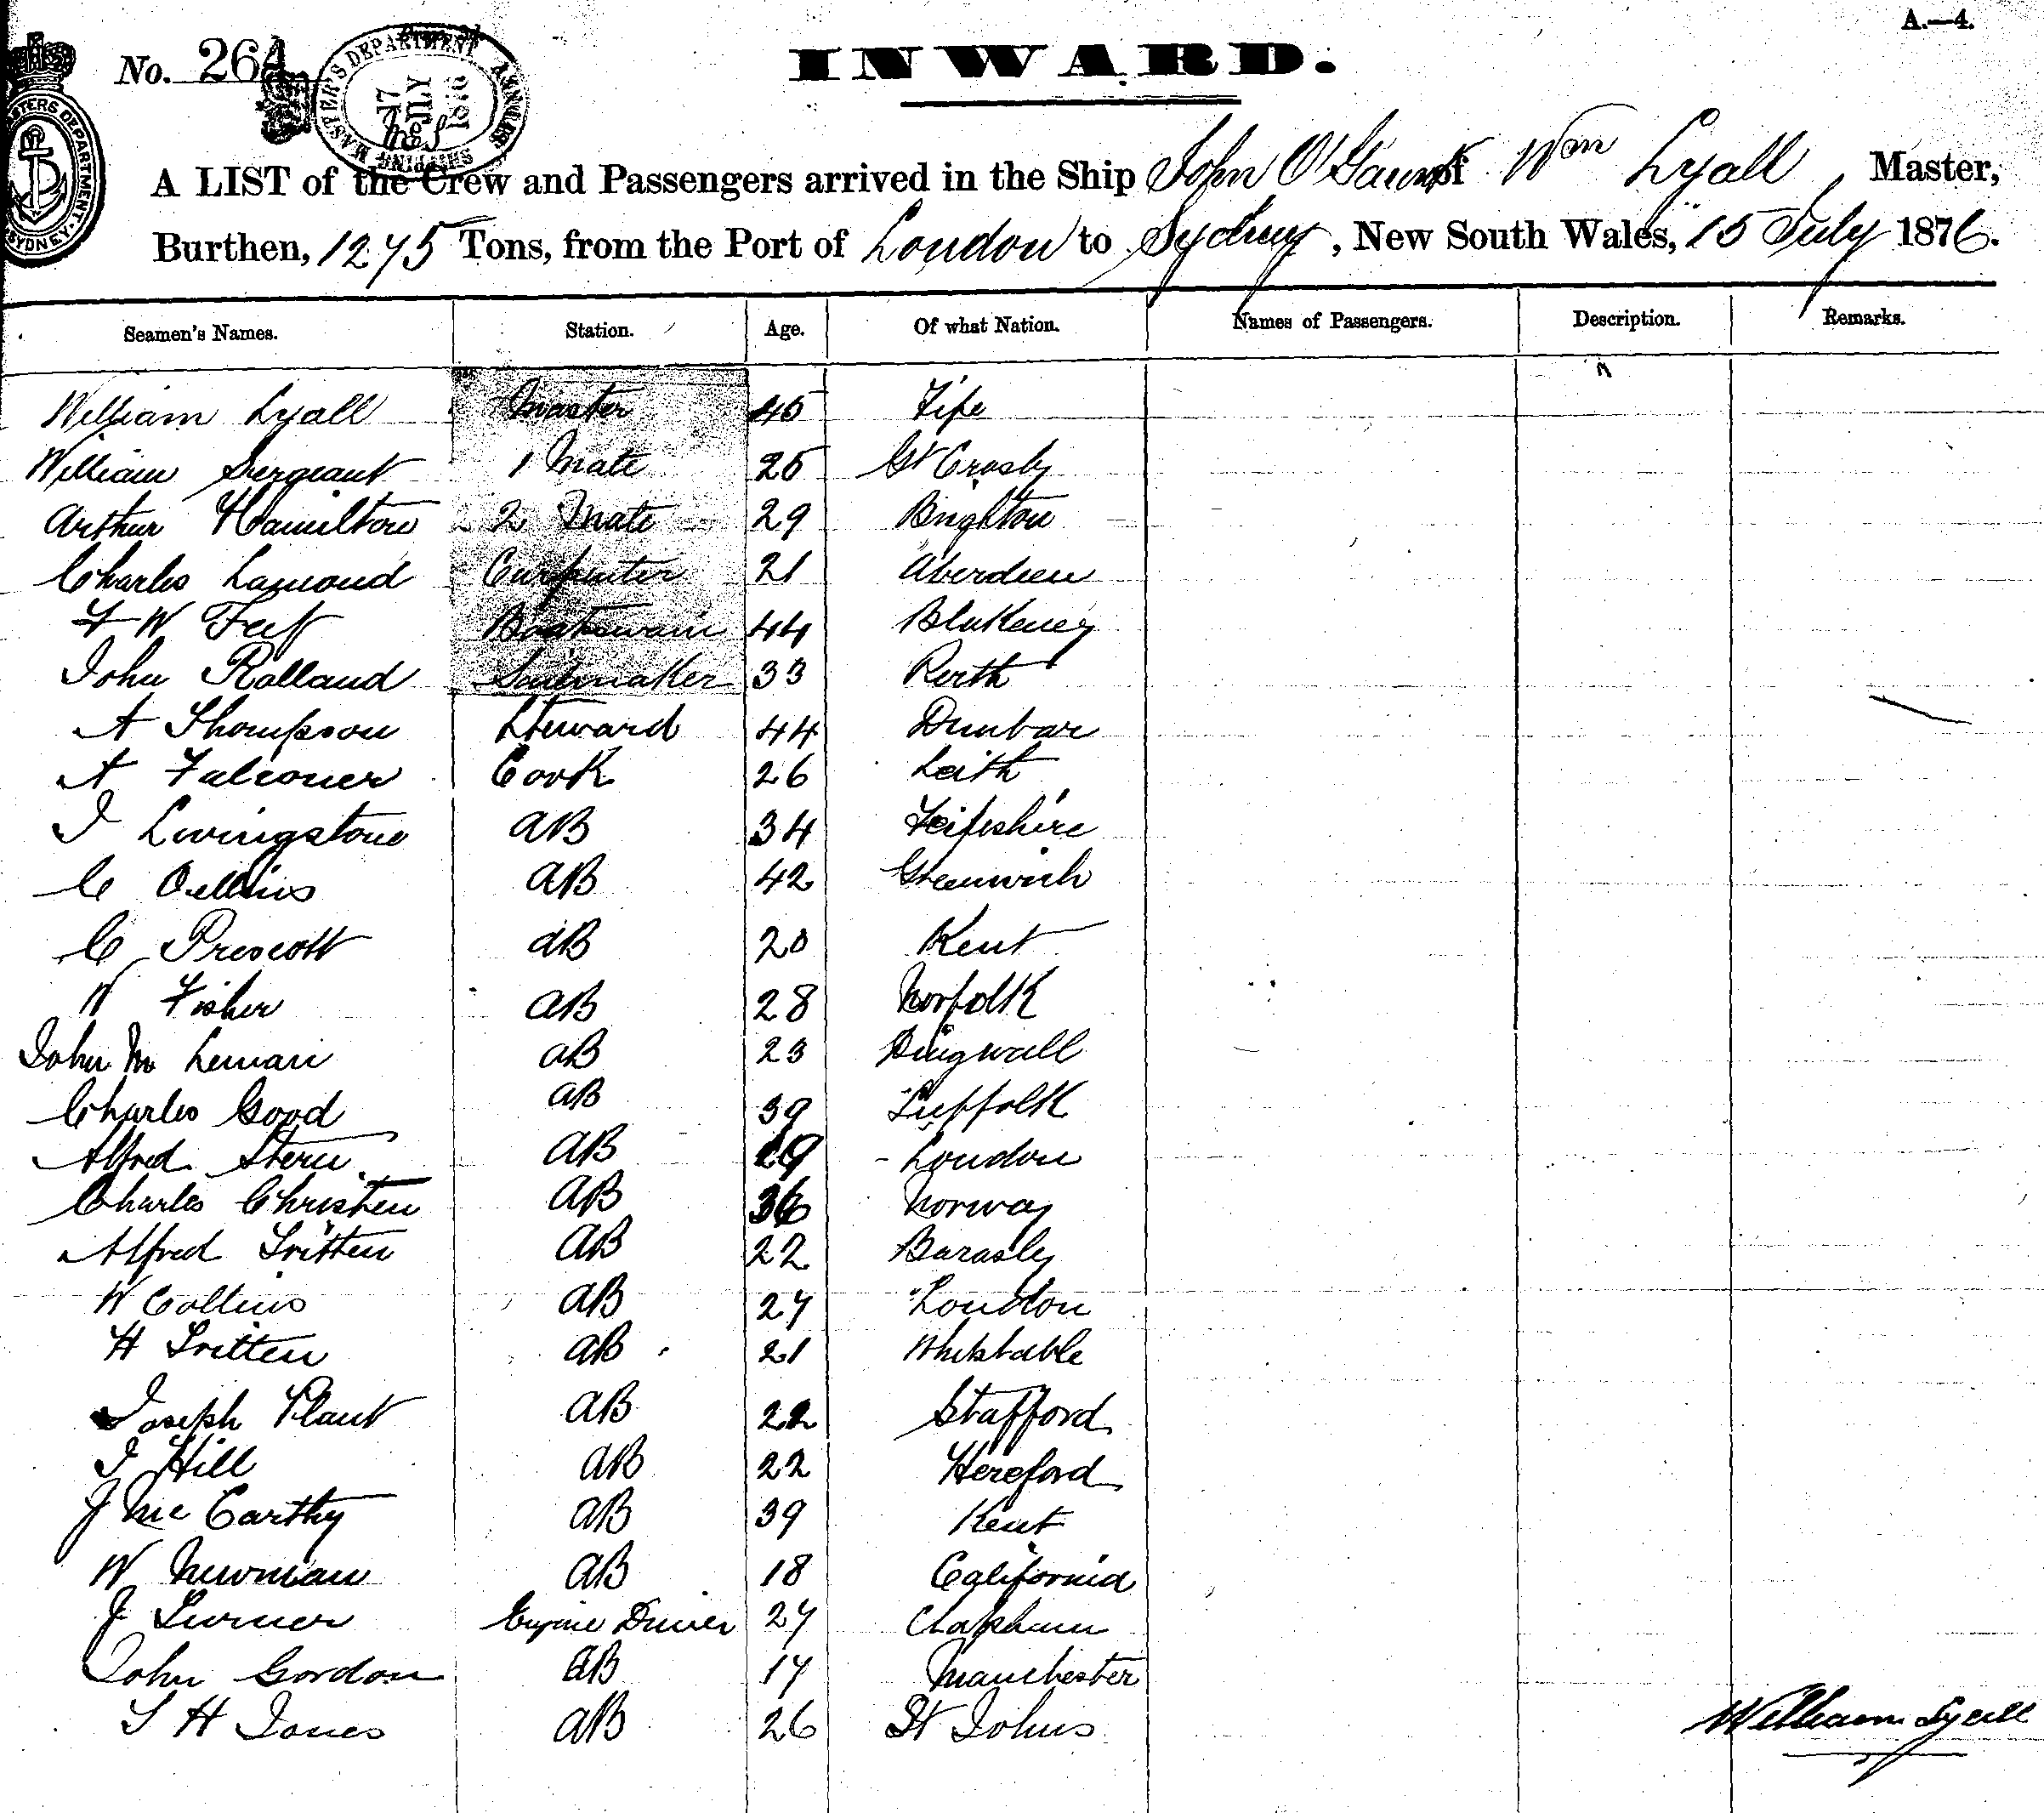 A.—4.
No. 264
INWARD.
SHIPPING MASTER'S DEPARTMENT
17 JULY 1876
MASTERS DEPARTMENT SYDNEY
A LIST of the Crew and Passengers arrived in the Ship John O'Gaunt of Wm Lyall, Master,
Burthen, 1275 Tons, from the Port of London to Sydney, New South Wales, 15 July 1876.
Seamen's Names. Station. Age. Of what Nation. Names of Passengers. Description. Remarks.
William Lyall Master 45 Fife
William Sergeant 1 Mate 25 Gt Crosby
Arthur Hamilton 2 Mate 29 Brighton
Charles Lamond Carpenter 21 Aberdeen
F W Feet Boatswain 44 Blakeney
John Rolland Sailmaker 33 Perth
A Thompson Steward 44 Dunbar
A Falconer Cook 26 Leith
J Livingstone AB 34 Feifishire
C Collins AB 42 Greenwich
C Prescott AB 20 Kent
W Fisher AB 28 Norfolk
John M Leman AB 23 Dingwall
Charles Good AB 39 Suffolk
Alfred Stern AB 29 London
Charles Christen AB 36 Norway
Alfred Tritten AB 22 Barasly
W Collins AB 27 London
H Tritten AB 21 Whitstable
Joseph Plant AB 22 Stafford
J Hill AB 22 Hereford
J McCarthy AB 39 Kent
W Newman AB 18 California
J Turner Engine Driver 27 Clapham
John Gordon AB 17 Manchester
T H Jones AB 26 St Johns
William Lyall